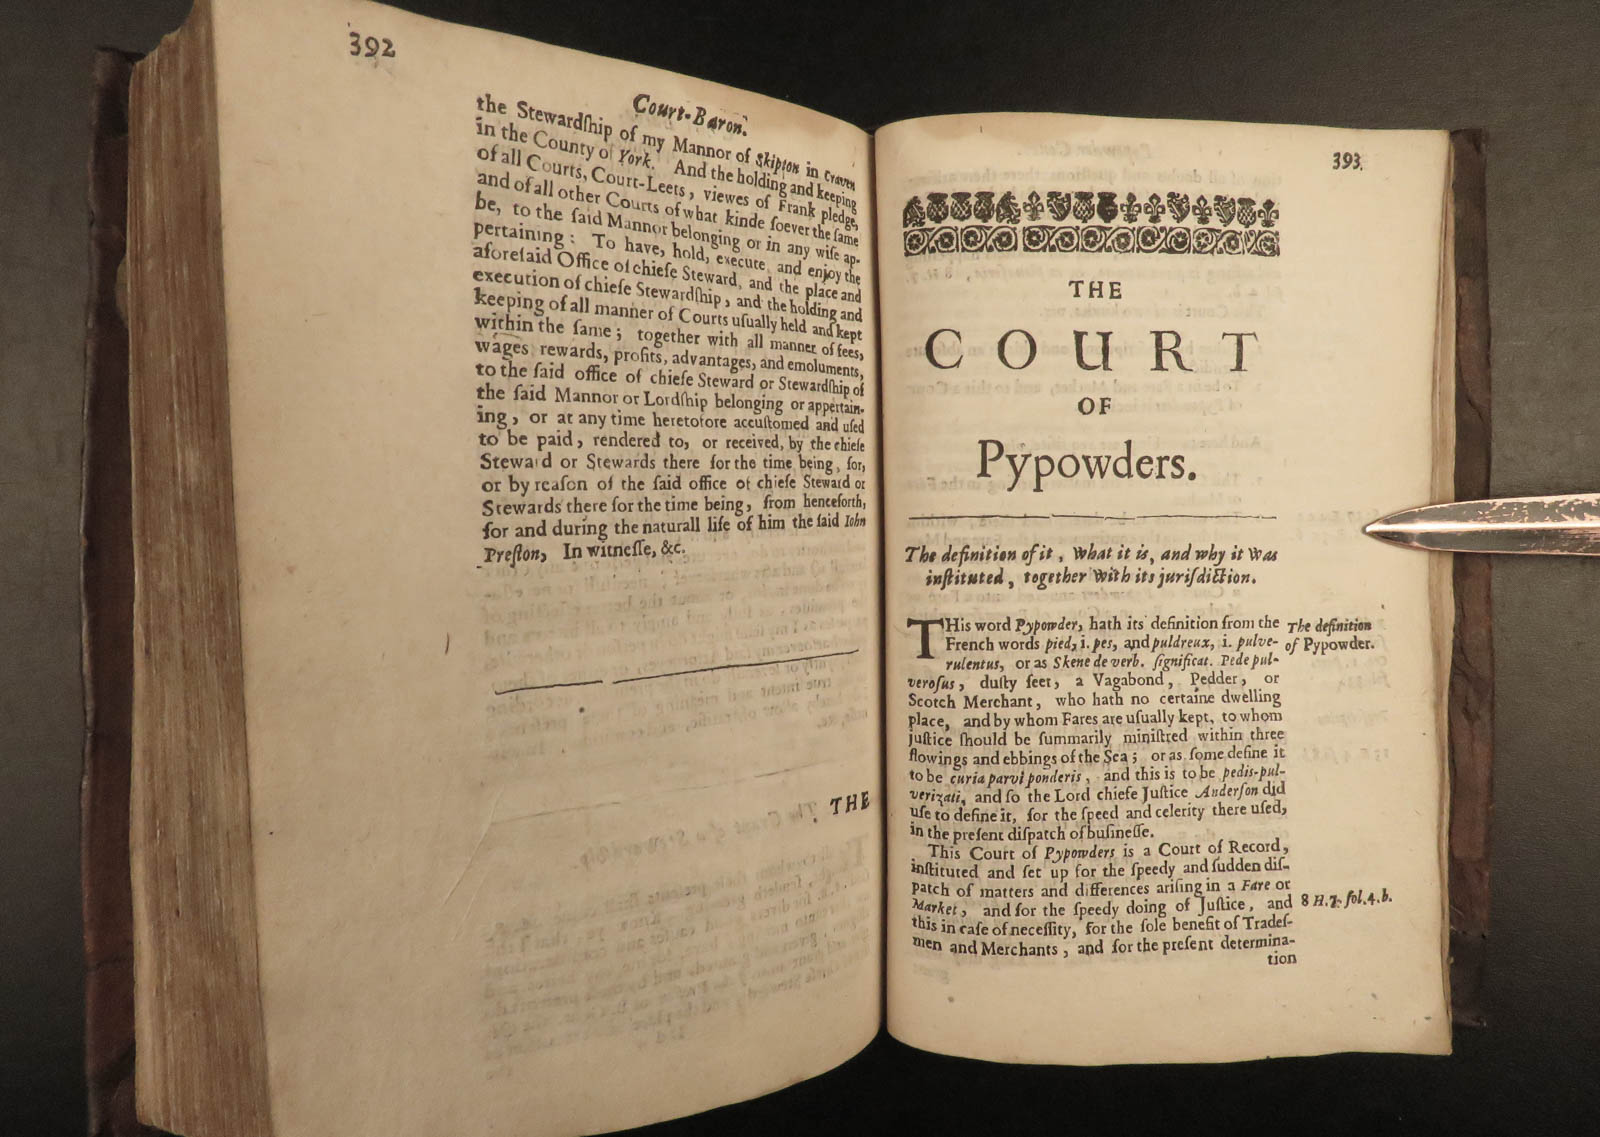 392
Court-Baron.
the Stewardſhip of my Mannor of Skipton in Craven
in the County of York. And the holding and keeping
of all Courts, Court-Leets, viewes of Frank pledge,
and of all other Courts of what kinde ſoever the ſame
be, to the ſaid Mannor belonging or in any wiſe ap-
pertaining: To have, hold, execute, and enjoy the
aforeſaid Office of chiefe Steward, and the place and
execution of chiefe Stewardſhip, and the holding and
keeping of all manner of Courts uſually held and kept
within the ſame; together with all manner of fees,
wages rewards, profits, advantages, and emoluments,
to the ſaid office of chiefe Steward or Stewardſhip of
the ſaid Mannor or Lordſhip belonging or appertain-
ing, or at any time heretofore accuſtomed and uſed
to be paid, rendered to, or received, by the chiefe
Steward or Stewards there for the time being, for,
or by reaſon of the ſaid office of chiefe Steward or
Stewards there for the time being, from henceforth,
for and during the naturall life of him the ſaid Iohn
Preſton, In witneſſe, &c.
THE
393.
THE
COURT
OF
Pypowders.
The definition of it, what it is, and why it was
inſtituted, together with its juriſdiction.
THis word Pypowder, hath its definition from the
French words pied, i. pes, and puldreux, i. pulve-
rulentus, or as Skene de verb. ſignificat. Pede pul-
veroſus, duſty feet, a Vagabond, Pedder, or
Scotch Merchant, who hath no certaine dwelling
place, and by whom Fares are uſually kept, to whom
Juſtice ſhould be ſummarily miniſtred within three
flowings and ebbings of the Sea; or as ſome define it
to be curia parvi ponderis, and this is to be pedis-pul-
verizati, and ſo the Lord chiefe Juſtice Anderſon did
uſe to define it, for the ſpeed and celerity there uſed,
in the preſent diſpatch of buſineſſe.
This Court of Pypowders is a Court of Record,
inſtituted and ſet up for the ſpeedy and ſudden diſ-
patch of matters and differences ariſing in a Fare or
Market, and for the ſpeedy doing of Juſtice, and
this in caſe of neceſſity, for the ſole benefit of Tradeſ-
men and Merchants, and for the preſent determina-
tion
The definition
of Pypowder.
8 H. 7. fol. 4. b.